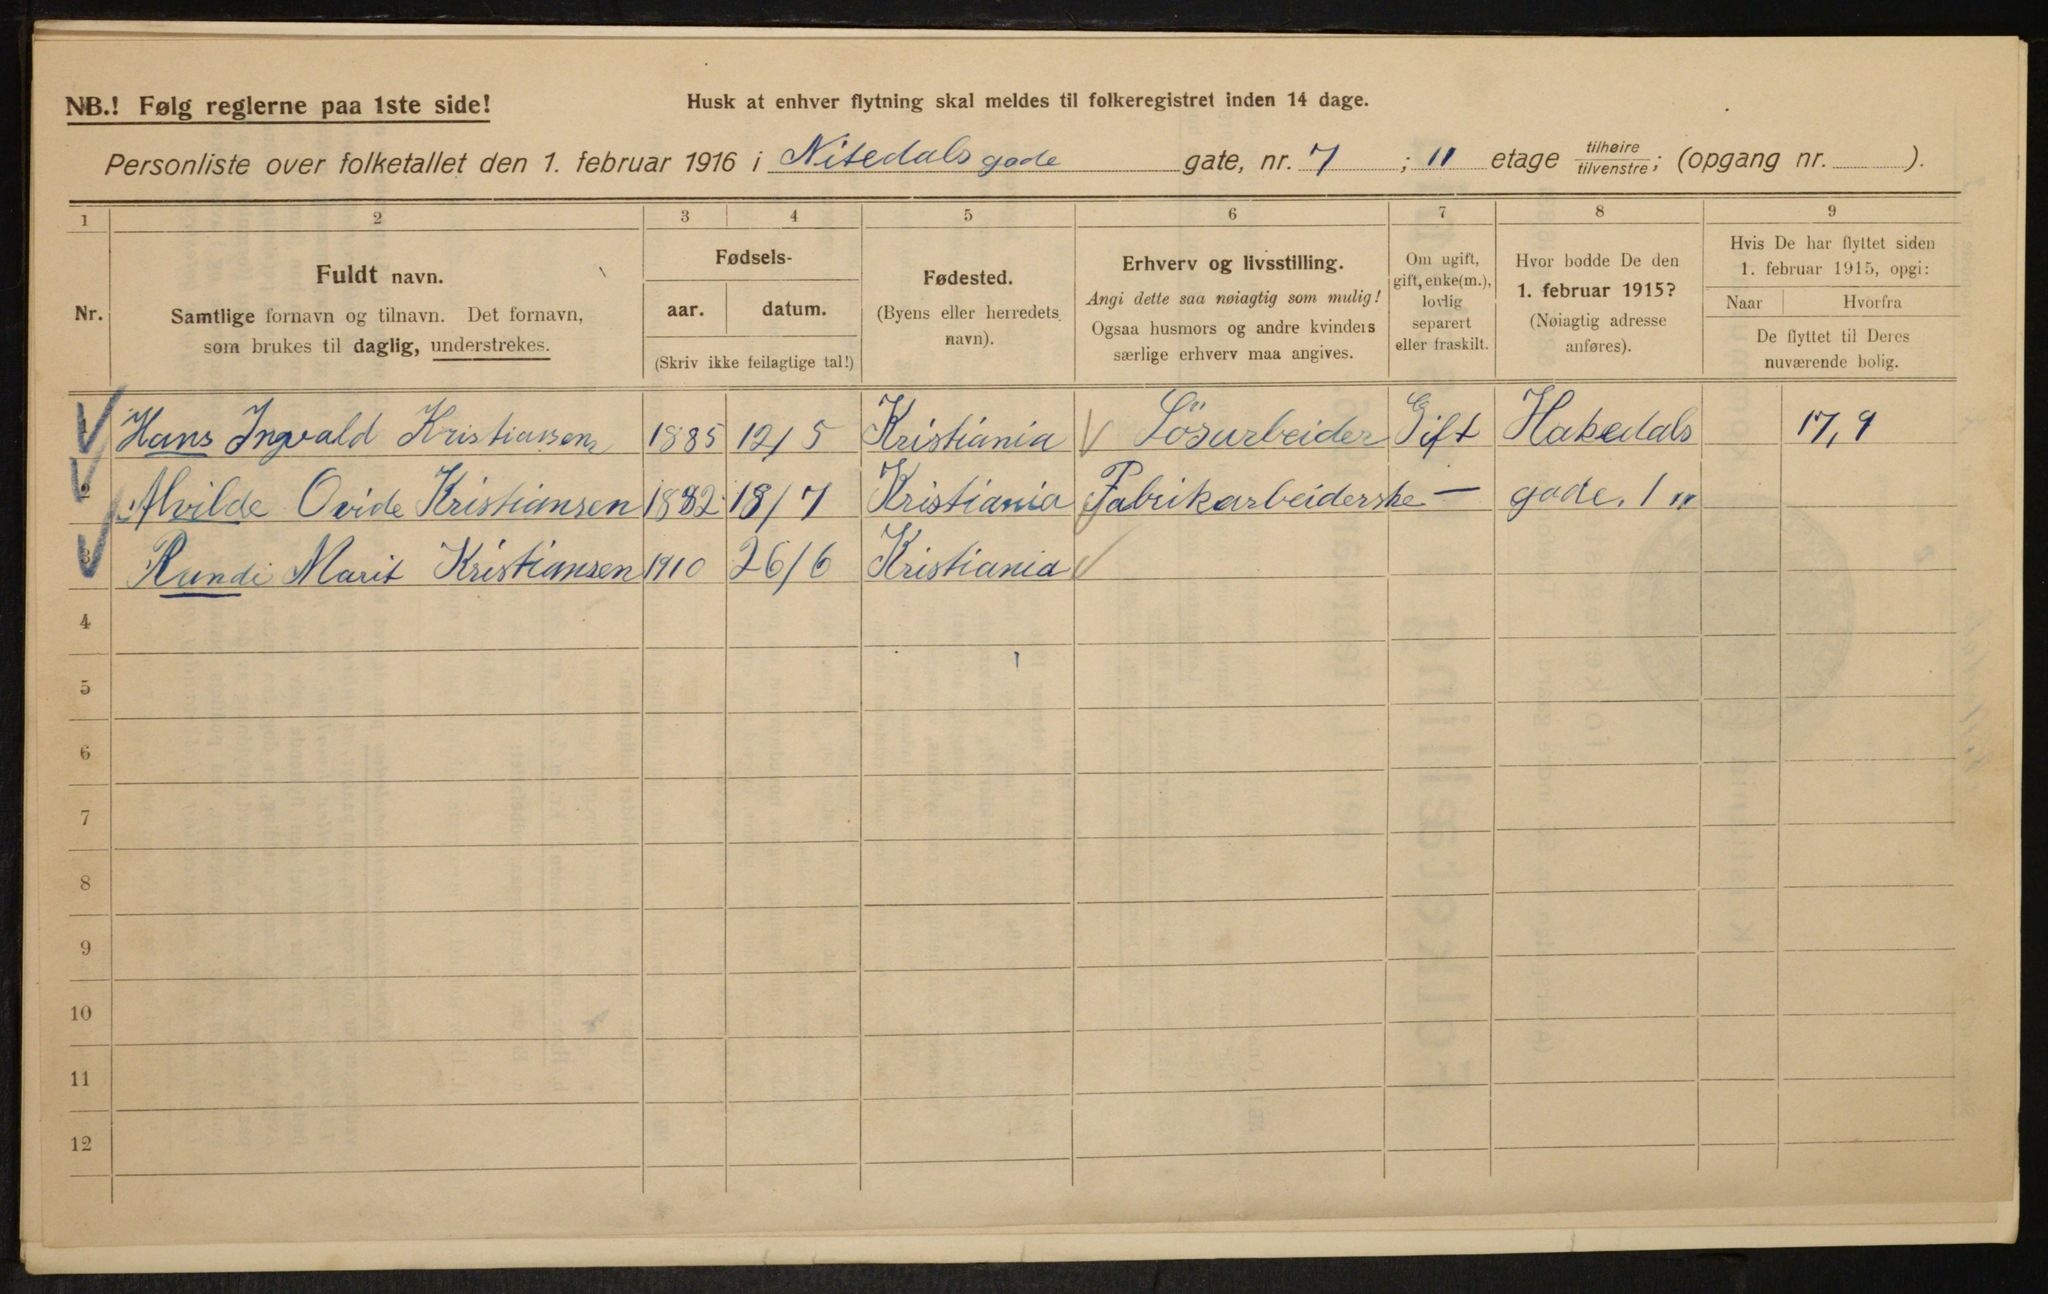 NB.! Følg reglerne paa 1ste side!
Husk at enhver flytning skal meldes til folkeregistret inden 14 dage.
Personliste over folketallet den 1. februar 1916 i Nitedals gade gate, nr. 7 ; 11 etage tilhøire / tilvenstre ; (opgang nr. ).
1 2 3 4 5 6 7 8 9
Nr.
Fuldt navn.
Samtlige fornavn og tilnavn. Det fornavn,
som brukes til daglig, understrekes.
Fødsels-
aar. datum.
(Skriv ikke feilagtige tal!)
Fødested.
(Byens eller herredets
navn).
Erhverv og livsstilling.
Angi dette saa nøiagtig som mulig!
Ogsaa husmors og andre kvinders
særlige erhverv maa angives.
Om ugift,
gift, enke(m.),
lovlig
separert
eller fraskilt.
Hvor bodde De den
1. februar 1915?
(Nøiagtig adresse
anføres).
Hvis De har flyttet siden
1. februar 1915, opgi:
Naar Hvorfra
De flyttet til Deres
nuværende bolig.
1 Hans Ingvald Kristiansen 1885 12/5 Kristiania Lösarbeider Gift Hakedals 17,9
2 Alvilde Ovide Kristiansen 1882 18/7 Kristiania Fabrikarbeiderske — gade. 1 11
3 Rundi Marit Kristiansen 1910 26/6 Kristiania
4
5
6
7
8
9
10
11
12